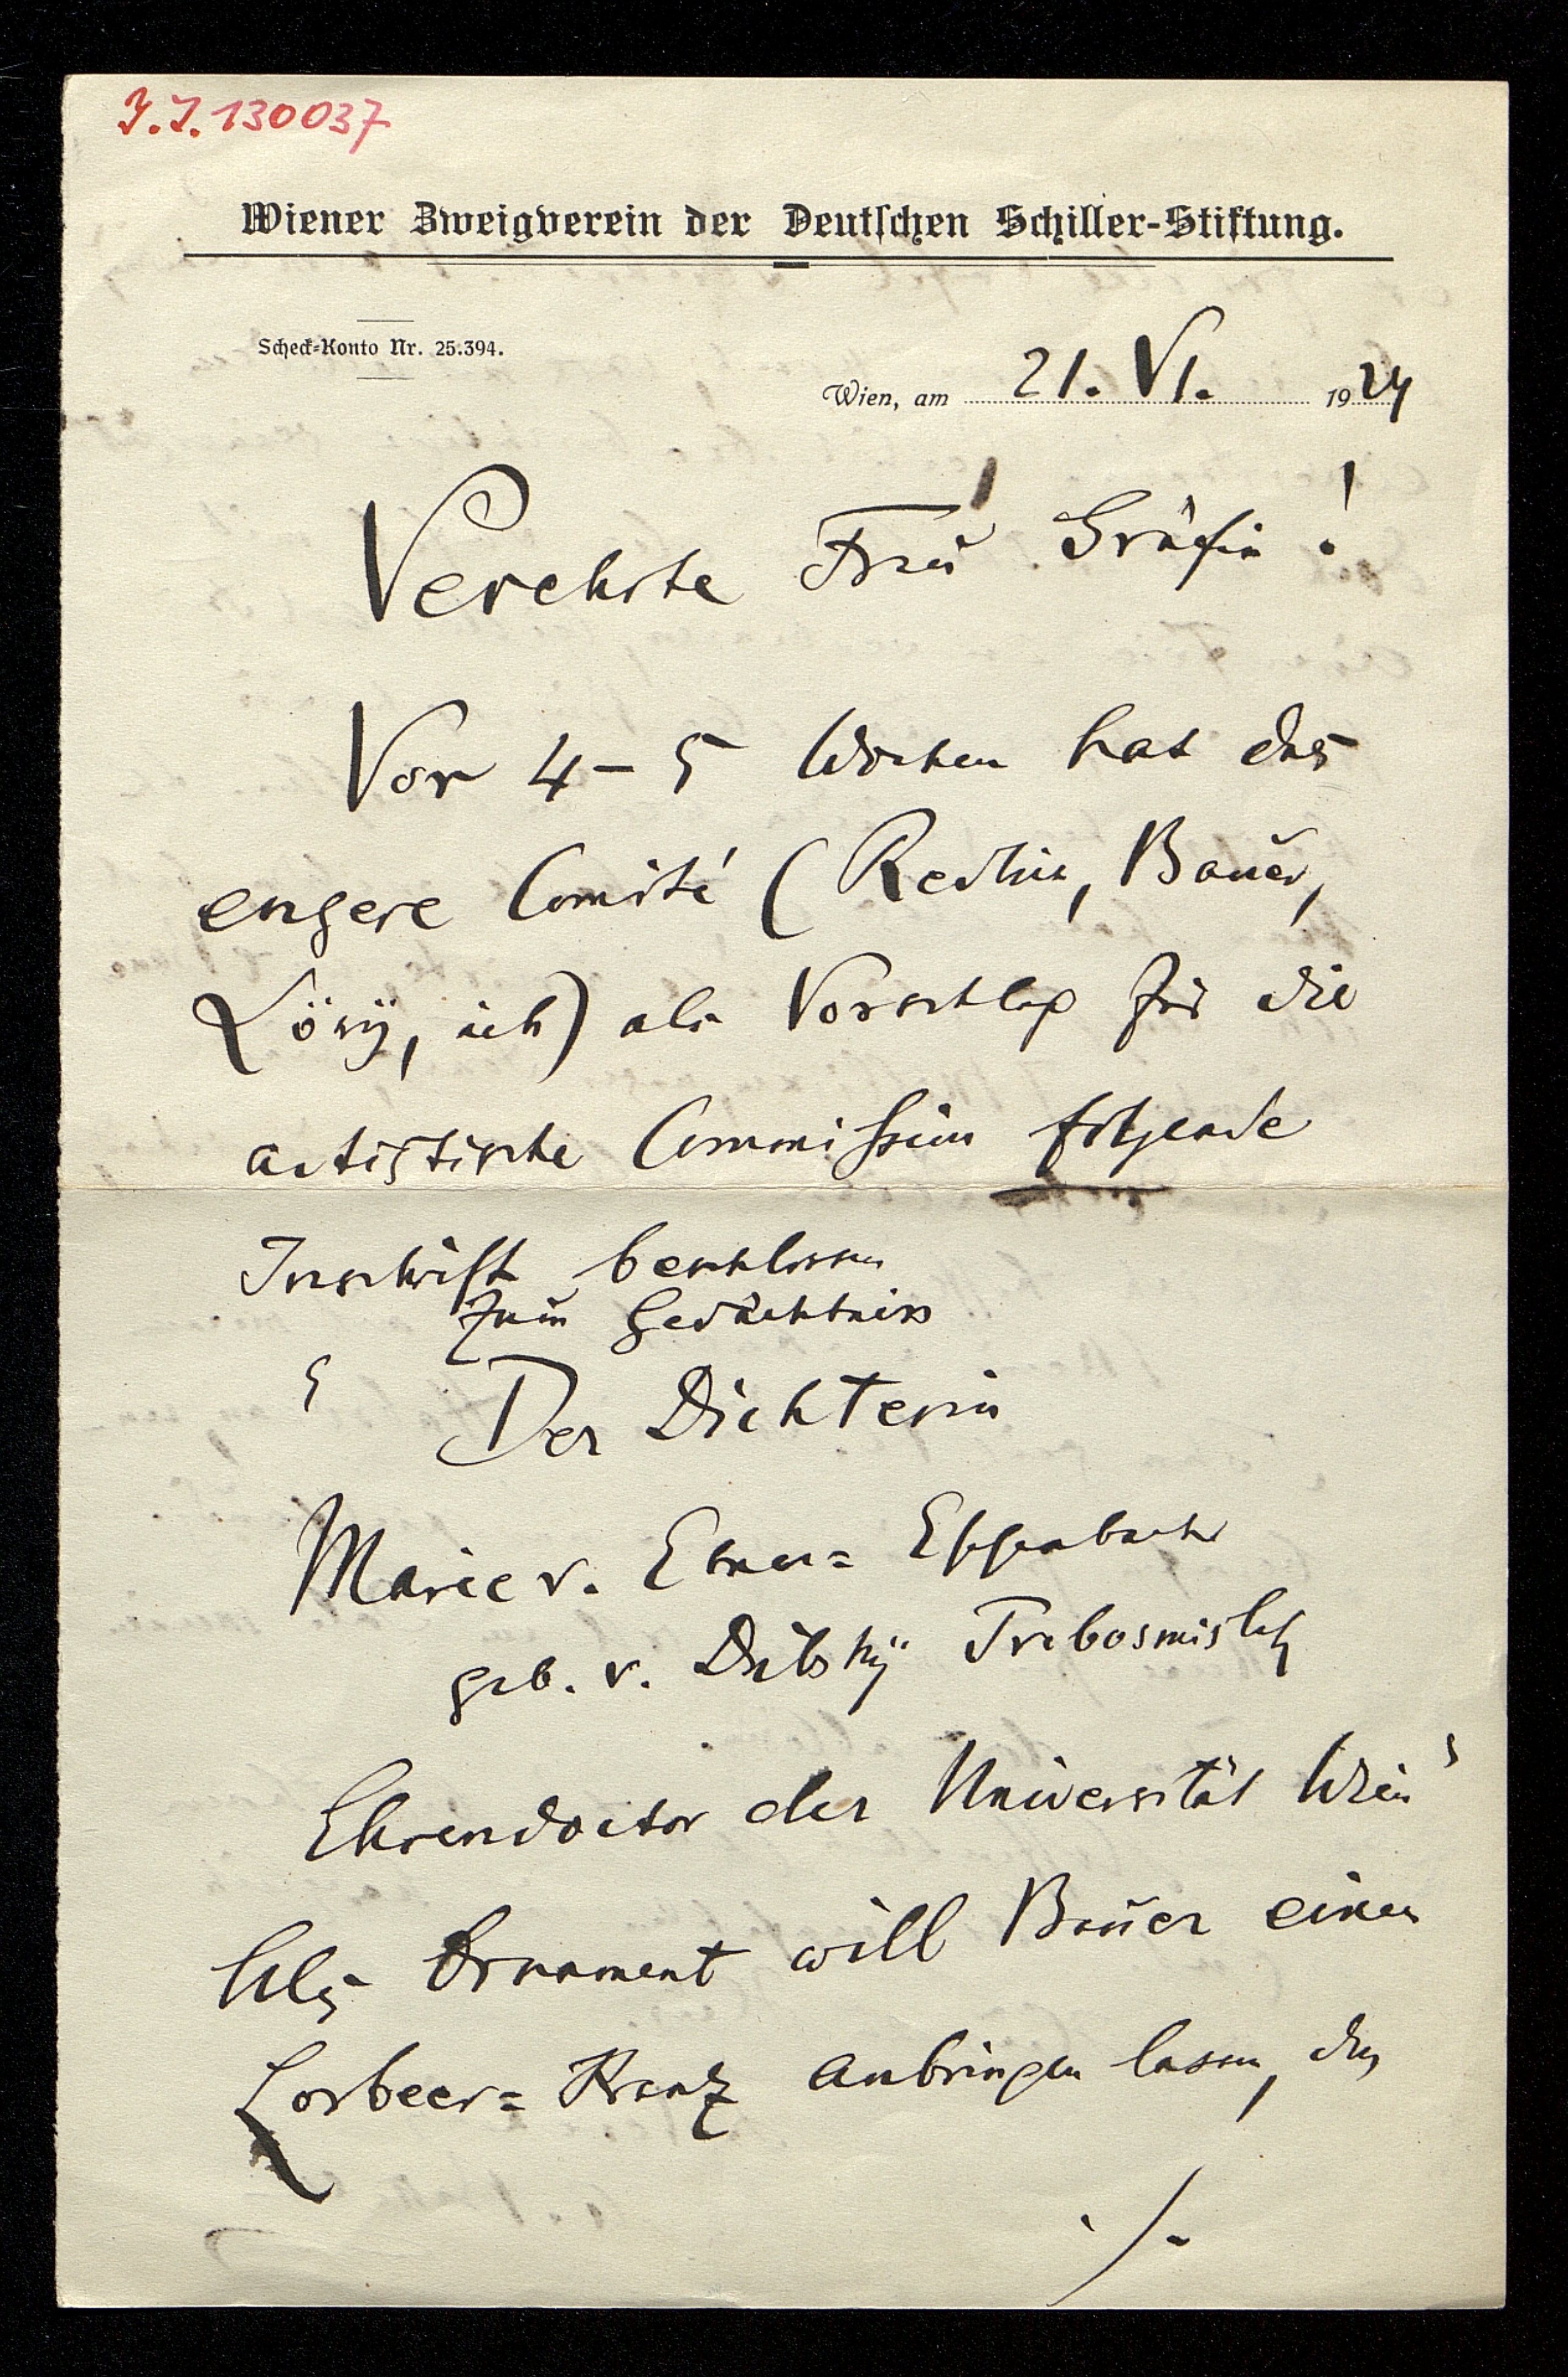 J.J. 130037
Wiener Zweigverein der Deutschen Schiller-Stiftung.
Scheck-Konto Nr. 25.394.
Wien, am 21. VI. 1924
Verehrte Frau Gräfin!
Vor 4-5 Wochen hat das
engere Comité (Redlich, Bauer,
Löwy, ich) als Vorschlag für die
artistische Commission folgende
Inschrift beschlossen
Zum Gedächtniss
Der Dichterin
Marie v. Ebner= Eschenbach
geb. v. Dubsky Trebomislitz
Ehrendoctor der Universität Wien
Als Ornament will Bauer einen
Lorbeer= Kranz anbringen lassen, der
./.